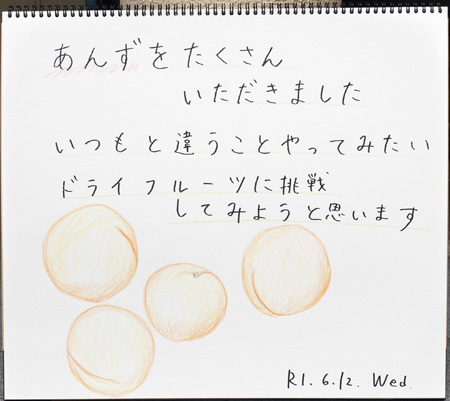 あんずをたくさん
いただきました
いつもと違うことやってみたい
ドライフルーツに挑戦
してみようと思います
R1.6.12. Wed.